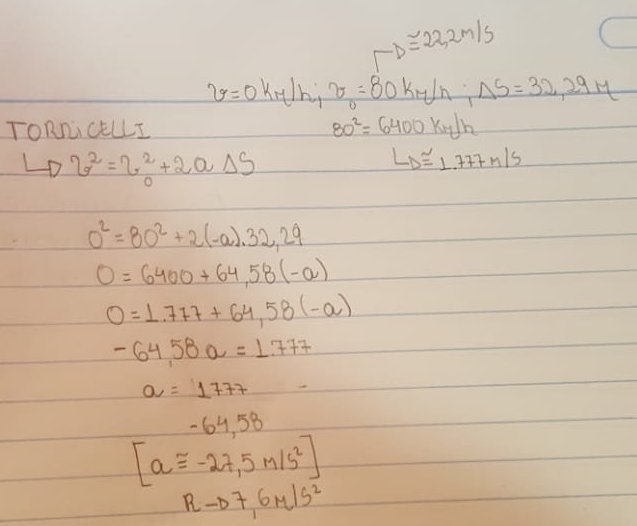 ↱→ ≅ 22,2 m/s
v = 0 Km/h; v₀ = 80 Km/h ; ΔS = 32,29 M
TORRICELLI
80² = 6400 Km/h
↳ v² = v₀² + 2a ΔS
↳ ≅ 1.777 m/s
0² = 80² + 2(-a).32,29
0 = 6400 + 64,58(-a)
0 = 1.777 + 64,58(-a)
-64,58 a = 1.777
a = 1777
-64,58
[a ≅ -27,5 m/s²]
R → 7,6 m/s²